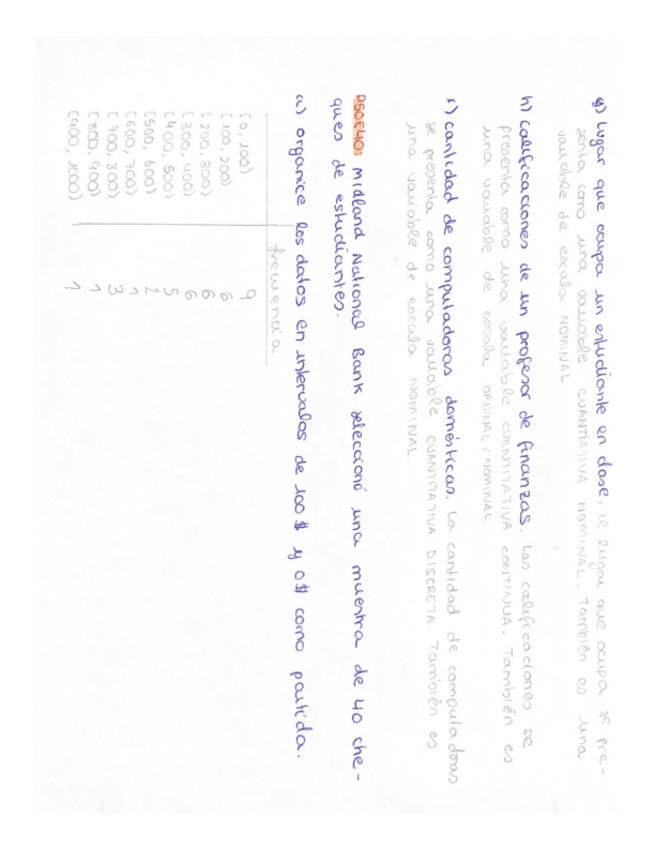 g) Lugar que ocupa un estudiante en clase. El lugar que ocupa se pre-
senta como una variable CUANTIATIVA NOMINAL. También es una
variable de escala NOMINAL
h) calificaciones de un profesor de finanzas. Las calificaciones se
presenta como una variable CUANTITATIVA CONTINUA. También es
una variable de escala ORDINAL/NOMINAL
i) cantidad de computadoras domésticas. La cantidad de computadoras
se presenta como una variable CUANTITATIVA DISCRETA. También es
una variable de escala NOMINAL.
Midland National Bank seleccionó una muestra de 40 che-
ques de estudiantes.
a) organice los datos en intervalos de 100$ y 0$ como partida.
frecuencia
[0, 100) 9
[100, 200) 6
[200, 300) 6
[300, 400) 6
[400, 500) 5
[500, 600) 2
[600, 700) 1
[700, 800) 3
[800, 900) 1
[900, 1000) 1